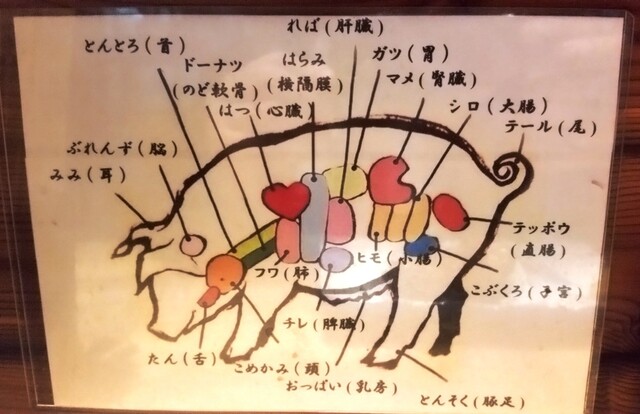 れば(肝臓)
とんとろ(首)
ドーナツ
(のど軟骨)
はらみ
(横隔膜)
ガツ(胃)
マメ(腎臓)
はつ(心臓)
シロ(大腸)
テール(尾)
ぶれんず(脳)
みみ(耳)
テッポウ
(直腸)
フワ(肺)
ヒモ(小腸)
こぶくろ(子宮)
チレ(脾臓)
たん(舌)
こめかみ(頭)
おっぱい(乳房)
とんそく(豚足)